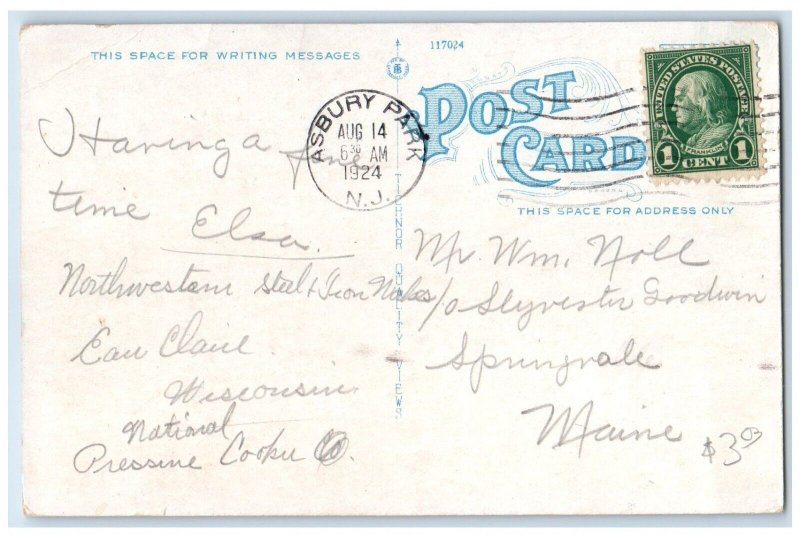 THIS SPACE FOR WRITING MESSAGES
Having a fine
time Elsa.
Northwestern Steel & Iron
Eau Claire
Wisconsin
National
Pressure Cooker Co.
TICHNOR QUALITY VIEWS
117024
POST
CARD
ASBURY PARK
AUG 14
6 30 AM
1924
N.J.
UNITED STATES POSTAGE
FRANKLIN
1 CENT 1
THIS SPACE FOR ADDRESS ONLY
Mr. Wm. Noll
c/o Slyvester Goodwin
Springvale
Maine
$3.00